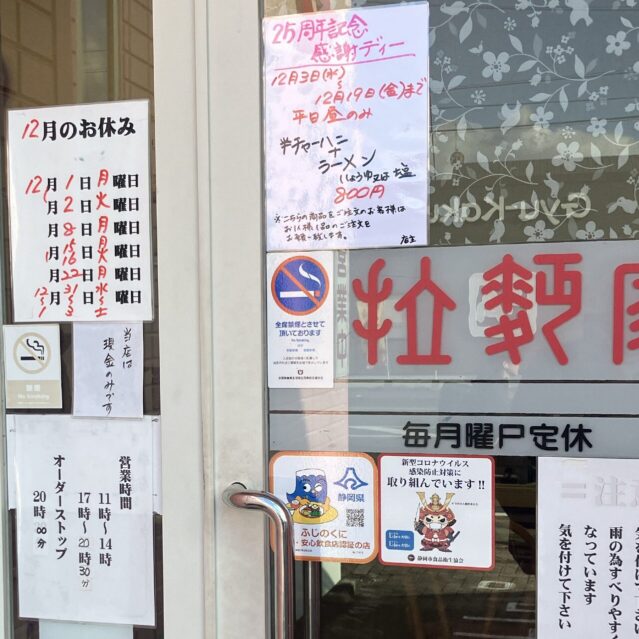 12月のお休み
12月1日月曜日
月2日火曜日
月8日月曜日
月15日月曜日
月16日火曜日
月22日月曜日
12月31日水曜日
1月3日土曜日
当店は
現金のみです
禁煙
No Smoking
営業時間
11時〜14時
17時〜20時30分
オーダーストップ
20時00分
25周年記念
感謝ディー
12月3日(水)
〜
12月19日(金)まで
平日昼のみ
半チャーハン
+
ラーメン
(しょうゆ又は塩)
800円
※こちらの商品をご注文のお客様は
お1人様1品のご注文を
お願い致します。
店主
Gyu-Kaku
全席禁煙とさせて
頂いております
営業中
拉麺
毎月曜日定休
静岡県
ふじのくに
安心飲食店認証の店
新型コロナウイルス
感染防止対策に
取り組んでいます!!
静岡市食品衛生協会
注
雨の為すべりやすく
なっています
気を付けて下さい